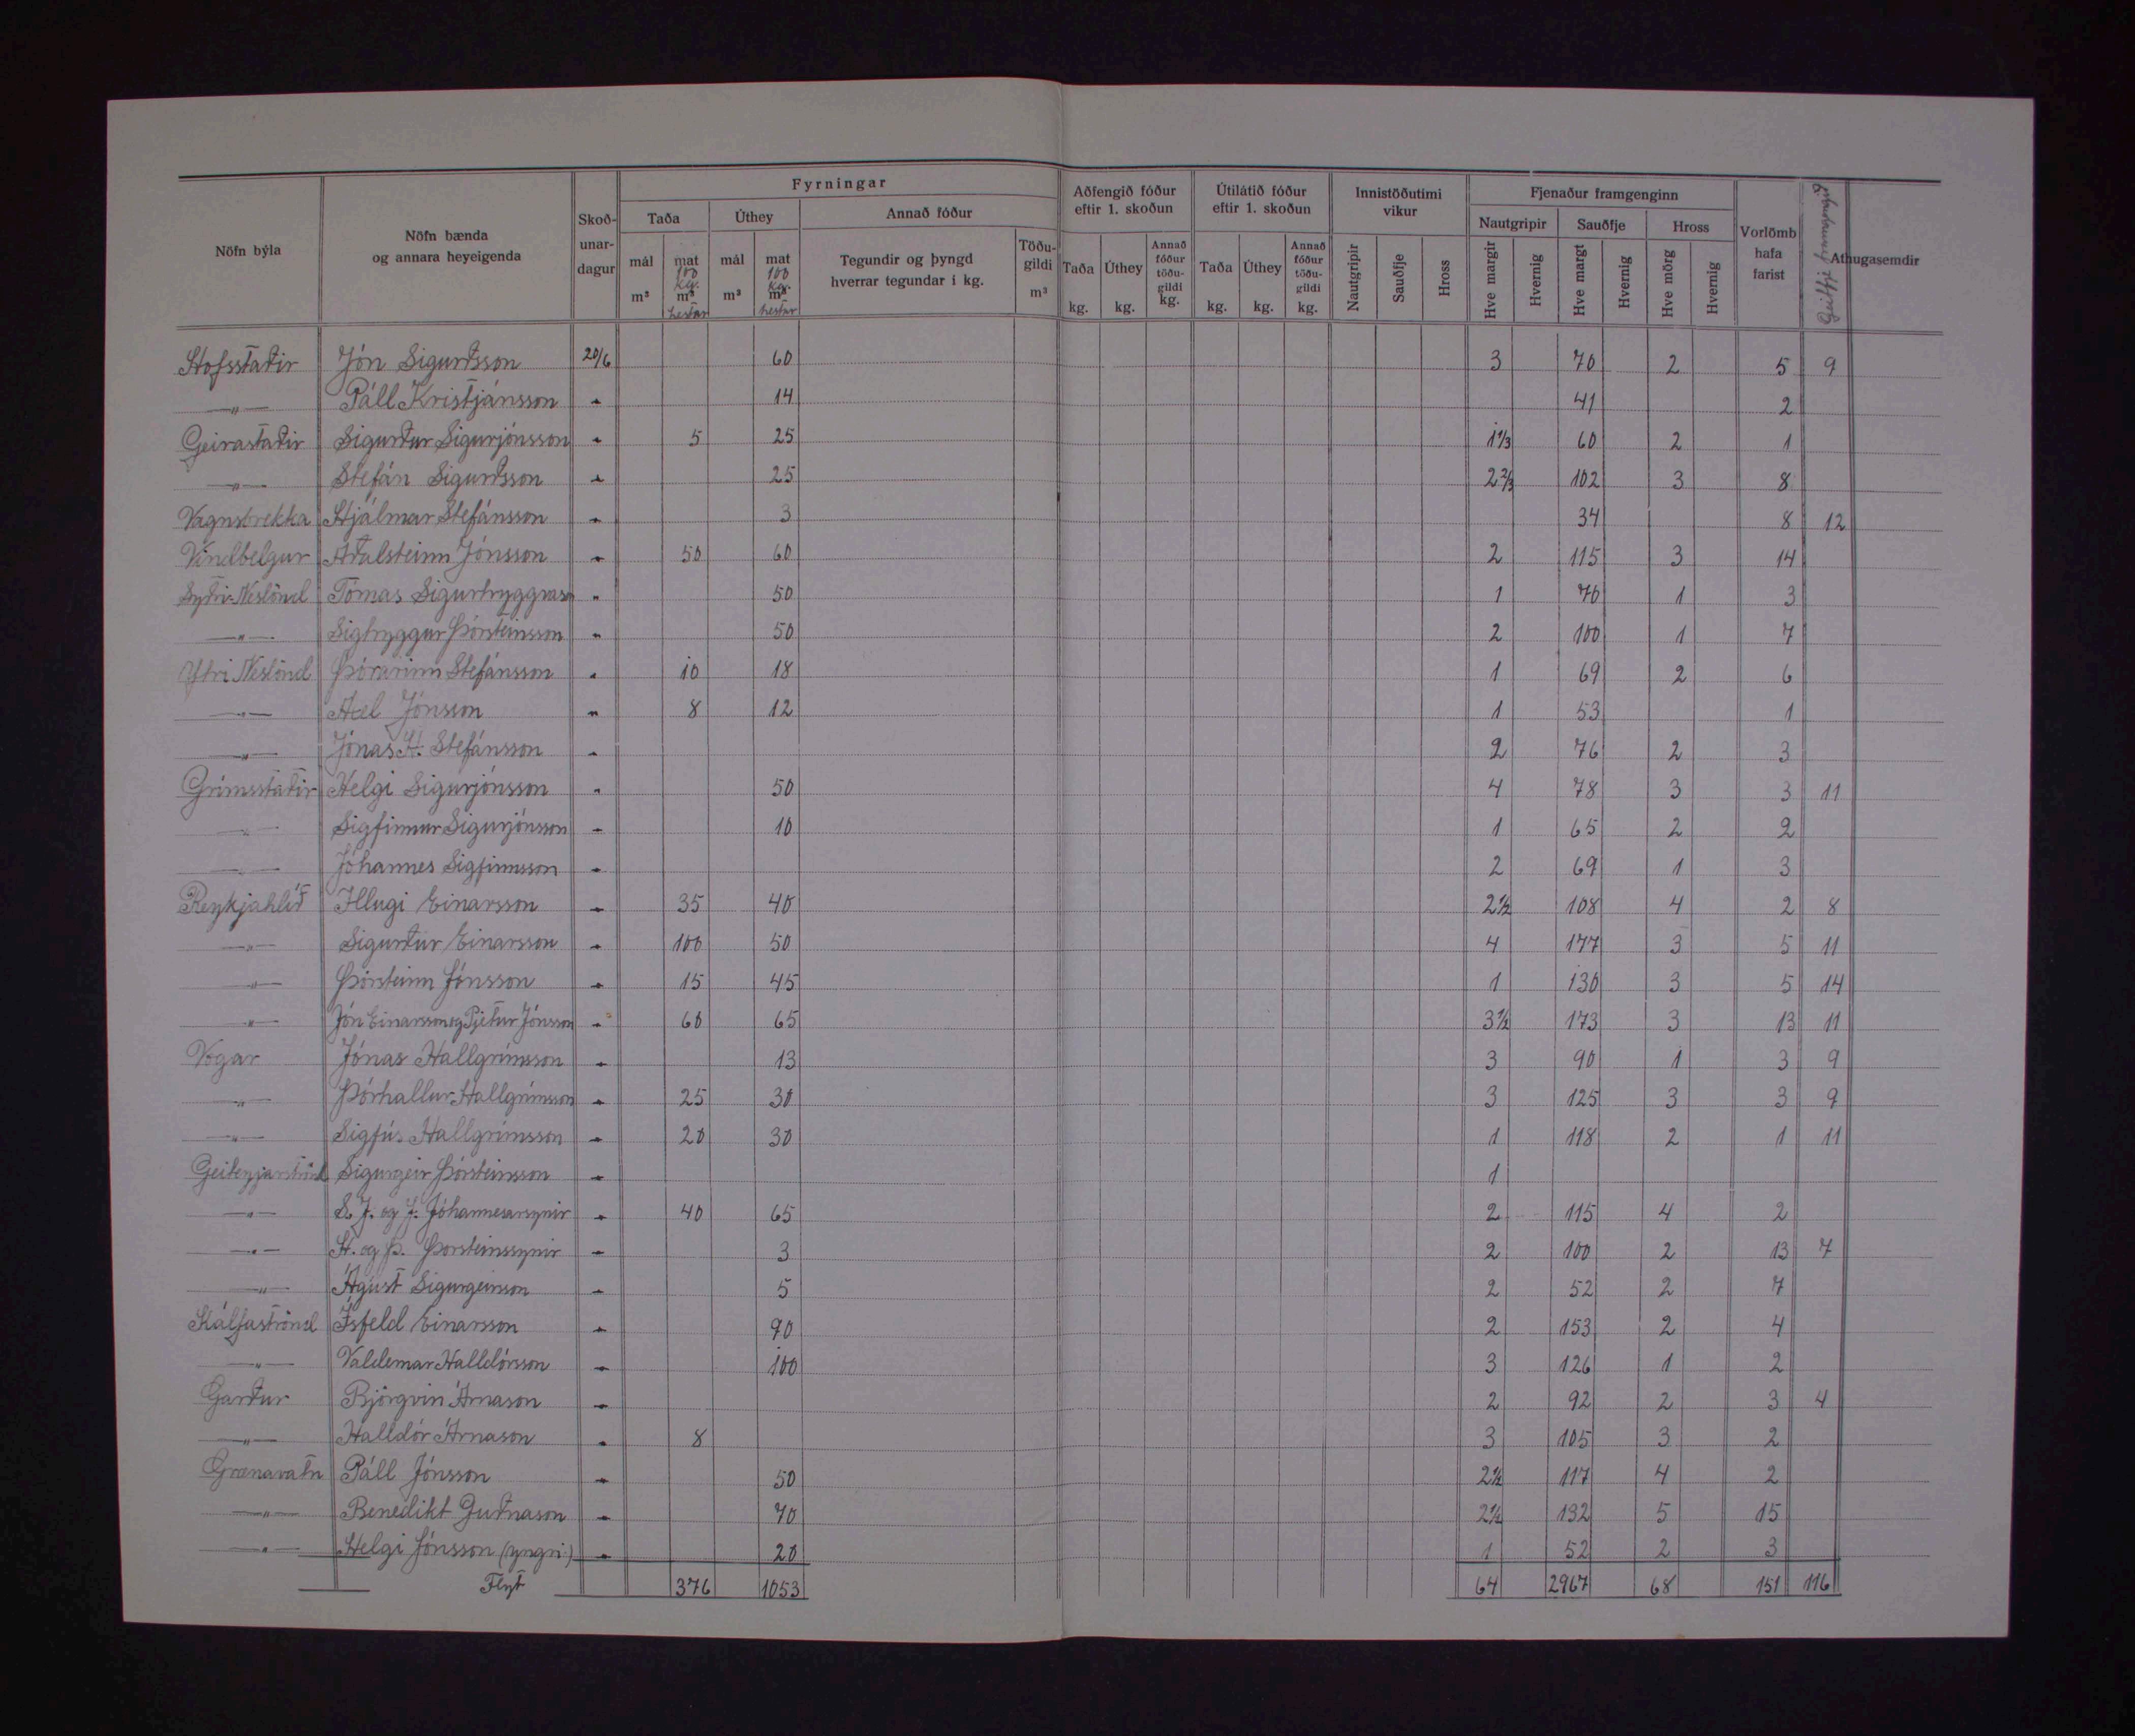 Fyrningar
Aðfengið fóður eftir 1. skoðun
Útilátið fóður eftir 1. skoðun
Innistöðutími vikur
Fjenaður framgenginn
Nöfn býla
Nöfn bænda og annara heyeigenda
Skoð-unar-dagur
Taða
Úthey
Annað fóður
Nautgripir
Sauðfje
Hross
Vorlömb hafa farist
Athugasemdir
mál m³
mat 100 kg. m³ hestar
mál m³
mat 100 kg. m³ hestar
Tegundir og þyngd hverrar tegundar í kg.
Töðu-gildi m³
Taða kg.
Úthey kg.
Annað fóður töðu-gildi kg.
Taða kg.
Úthey kg.
Annað fóður töðu-gildi kg.
Nautgripir
Sauðfje
Hross
Hve margir
Hvernig
Hve margt
Hvernig
Hve mörg
Hvernig
Hofsstaðir Jón Sigurðsson 20/6 60 3 70 2 5 9
—"— Páll Kristjánsson " 14 41 2
Geirastaðir Sigurður Sigurjónsson " 5 25 1 1/3 60 2 1
—"— Stefán Sigurðsson " 25 2 2/3 102 3 8
Vagnsbrekka Hjálmar Stefánsson " 3 34 8 12
Vindbelgur Aðalsteinn Jónsson " 50 60 2 115 3 14
Syðri-Neslönd Tómas Sigurtryggvason " 50 1 76 1 3
—"— Sigtryggur Þórsteinsson " 50 2 100 1 7
Ytri Neslönd Þórarinn Stefánsson " 10 18 1 69 2 6
—"— Axel Jónsson " 8 12 1 53 1
—"— Jónas H. Stefánsson " 2 76 2 3
Grímsstaðir Helgi Sigurjónsson " 50 4 78 3 3 11
—"— Sigfinnur Sigurjónsson " 10 1 65 2 2
—"— Jóhannes Sigfinnsson " 2 69 1 3
Reykjahlíð Illugi Einarsson " 35 40 2½ 108 4 2 8
—"— Sigurður Einarsson " 100 50 4 177 3 5 11
—"— Þórsteinn Jónsson " 15 45 1 130 3 5 14
—"— Jón Einarsson og Pjetur Jónsson " 60 65 3½ 173 3 13 11
Vogar Jónas Hallgrímsson " 13 3 90 1 3 9
—"— Þórhallur Hallgrímsson " 25 30 3 125 3 3 9
—"— Sigfús Hallgrímsson " 20 30 1 118 2 1 11
Geiteyjarströnd Sigurgeir Þórsteinsson " 1
—"— S. J. og J. Jóhannesarsynir " 40 65 2 115 4 2
—"— H. og Þ. Þorsteinssynir " 3 2 100 2 13 7
—"— Ágúst Sigurgeirsson " 5 2 52 2 7
Kálfaströnd Ísfeld Einarsson " 90 2 153 2 4
—"— Valdemar Halldórsson " 100 3 126 1 2
Garður Björgvin Árnason " 2 92 2 3 4
—"— Halldór Árnason " 8 3 105 3 2
Grænavatn Páll Jónsson " 50 2½ 117 4 2
—"— Benedikt Guðnason " 70 2½ 132 5 15
—"— Helgi Jónsson (yngri) " 20 1 52 2 3
Flyt 376 1053 64 2967 68 151 116